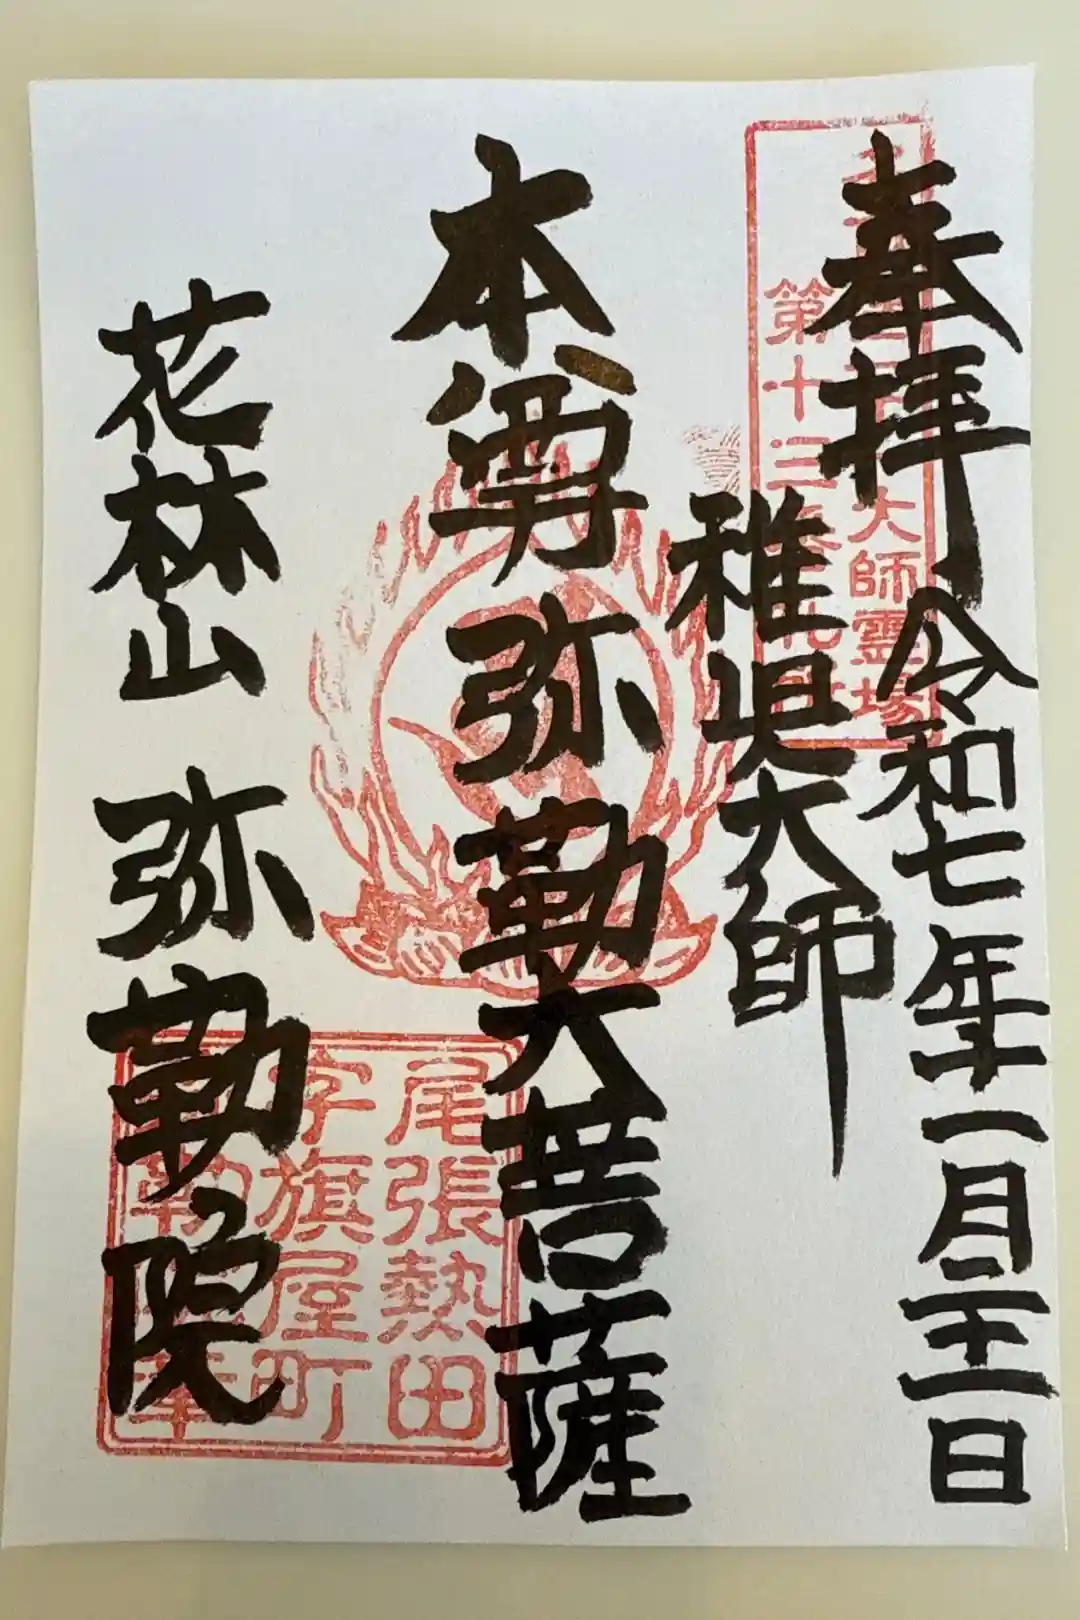 奉拝 令和七年十一月二十一日
大師霊場
第十三
稚児大師
本尊 弥勒大菩薩
花林山 弥勒院
尾張熱田
字旗屋町